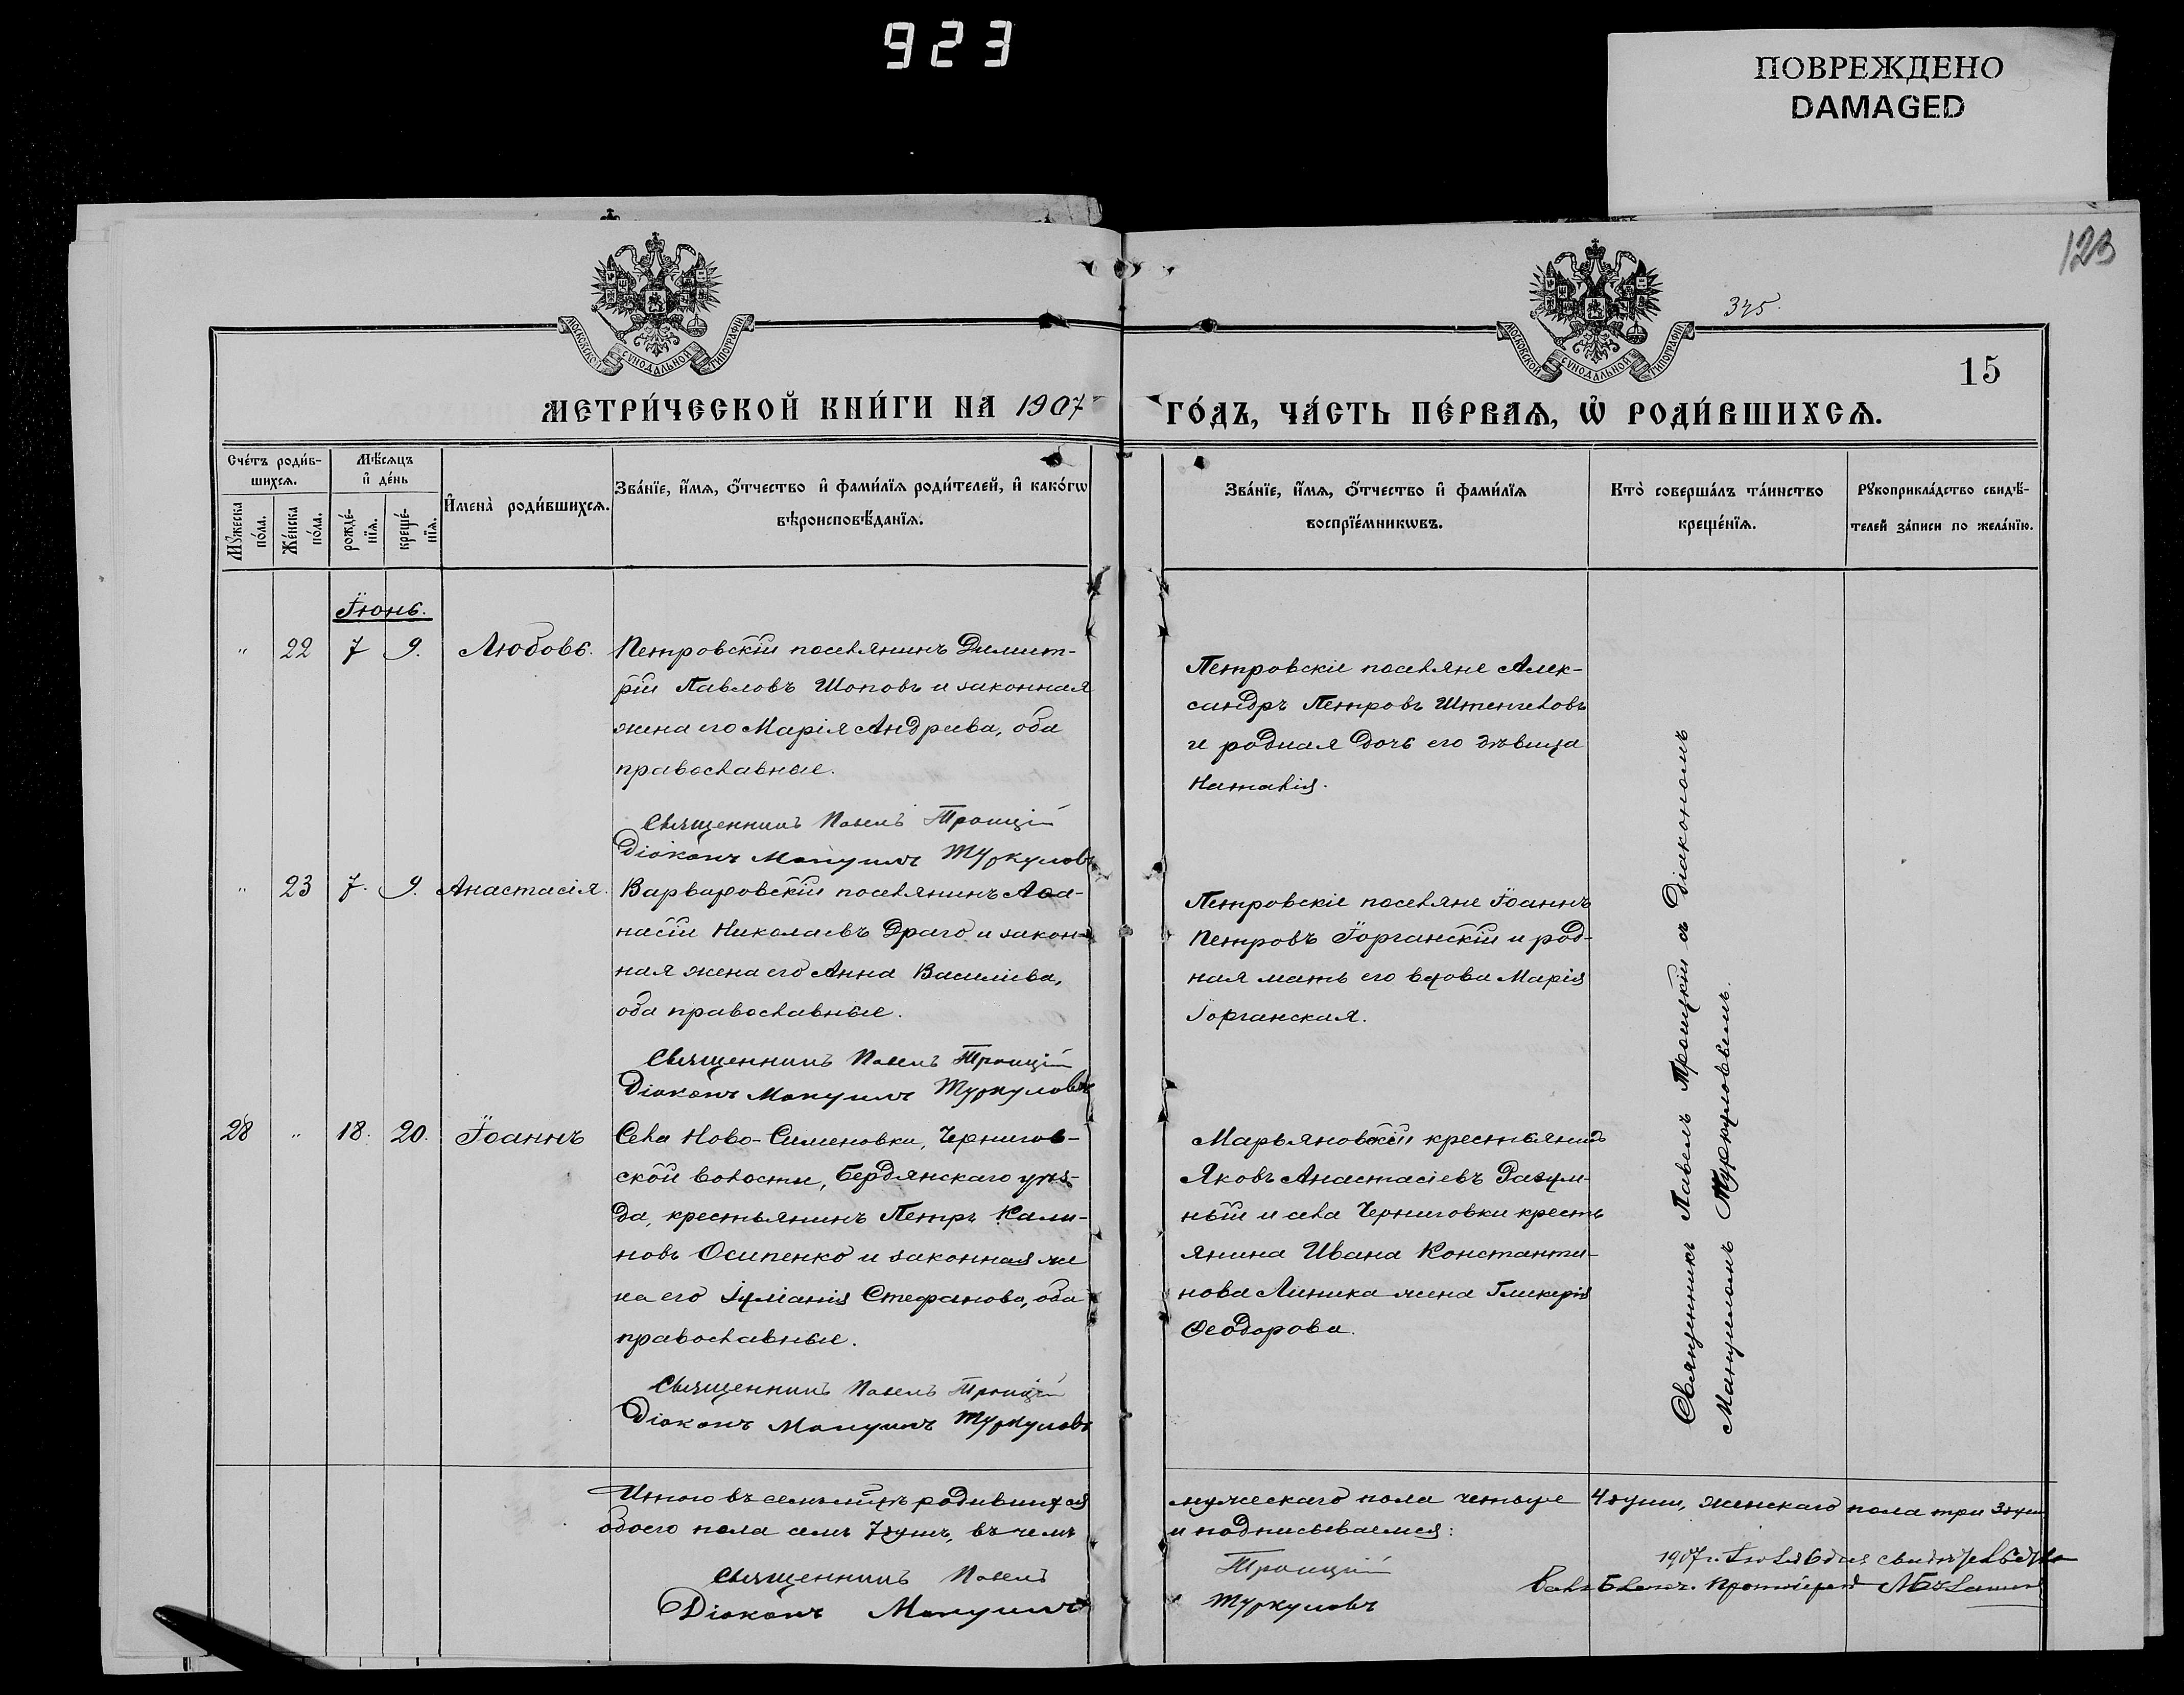 923
ПОВРЕЖДЕНО
DAMAGED
123
345.
15
МОСКОВСКОЙ СѴНОДАЛЬНОЙ ТИПОГРАФІИ
МОСКОВСКОЙ СѴНОДАЛЬНОЙ ТИПОГРАФІИ
МЕТРИ́ЧЕСКОЙ КНИ́ГИ НА 1907
ГО́ДЪ, ЧА́СТЬ ПЕ́РВАѦ, Ѡ҆ РОДИ́ВШИХСѦ.
Сче́тъ роди́в-
шихсѧ.
Мꙋ́жеска
по́ла.
Же́нска
по́ла.
Мѣ́сѧцъ
и҆ де́нь
рожде́-
нїѧ.
креще́-
нїѧ.
И҆мена̀ роди́вшихсѧ.
Зва́нїе, и҆́мѧ, ѻ҆́тчество и҆ фами́лїѧ роди́телей, и҆ како́гѡ
вѣроисповѣ́данїѧ.
Зва́нїе, и҆́мѧ, ѻ҆́тчество и҆ фами́лїѧ
воспрїе́мникѡвъ.
Кто̀ соверша́лъ та́инство
креще́нїѧ.
Рꙋкоприкла́дство свидѣ́-
телей за́писи по жела́нїю.
Іюнь.
" 22 7 9. Любовь.
Петровскій поселянинъ Димит-
рій Павловъ Шоповъ и законная
жена его Марія Андреева, оба
православные.
Священникъ Павелъ Троицкій
Діаконъ Мануилъ Туркуловъ
Петровскіе поселяне Алек-
сандръ Петровъ Штенгеловъ
и родная дочь его дѣвица
Наталія.
" 23 7. 9. Анастасія.
Варваровскій поселянинъ Аѳа-
насій Николаевъ Драго и закон-
ная жена его Анна Василіева,
оба православные.
Священникъ Павелъ Троицкій
Діаконъ Мануилъ Туркуловъ
Петровскіе поселяне Іоаннъ
Петровъ Іорганскій и род-
ная мать его вдова Марія
Іорганская.
28 " 18. 20. Іоаннъ
Села Ново-Сименовки, Чернигов-
ской волости, Бердянскаго уѣз-
да, крестьянинъ Петръ Кали-
новъ Осипенко и законная же
на его Іуліанія Стефанова, оба
православные.
Священникъ Павелъ Троицкій
Діаконъ Мануилъ Туркуловъ
Марьяновскій крестьянинъ
Яковъ Анастасіевъ Разум-
ный и села Черниговки кресть
янина Ивана Константи-
нова Линика жена Гликерія
Ѳеодорова.
Священникъ Павелъ Троицкій съ діакономъ
Мануиломъ Туркуловымъ.
Итого въ семъ мѣсяцѣ родившихся
обоего пола семь 7 душъ, въ чемъ
мужескаго пола четыре 4 души, женскаго пола три 3 души
и подписываемся:
Священникъ Павелъ Троицкій
Діаконъ Мануилъ Туркуловъ
1907 г. Іюля 6 дня свидѣтельствовалъ
Благоч. Протоіерей